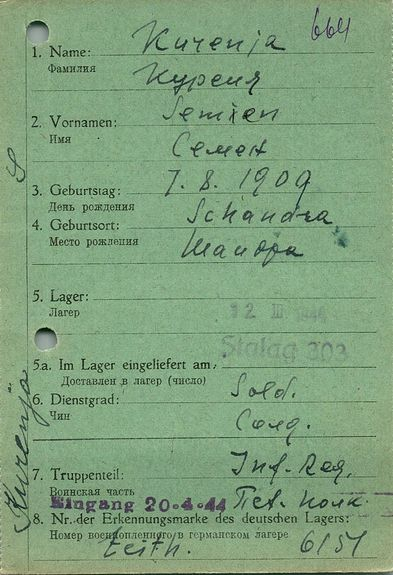 664
1. Name: Kurenja
Фамилия Куреня
2. Vornamen: Semien
Имя Семен
3. Geburtstag: 7. 8. 1909
День рождения
4. Geburtsort: Schandra
Место рождения Шандра
5. Lager:
Лагер
12 III 1944
Stalag 303
5a. Im Lager eingeliefert am:
Доставлен в лагер (число)
6. Dienstgrad: Sold.
Чин Солд.
7. Truppenteil: Inf. Reg.
Воинская часть Пех. полк.
Eingang 20.4.44
8. Nr. der Erkennungsmarke des deutschen Lagers:
Номер военнопленного в германском лагере
Zeith. 6151
Kurenja S